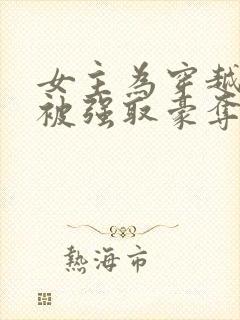 女主為穿越
被强取豪奪
熱海市